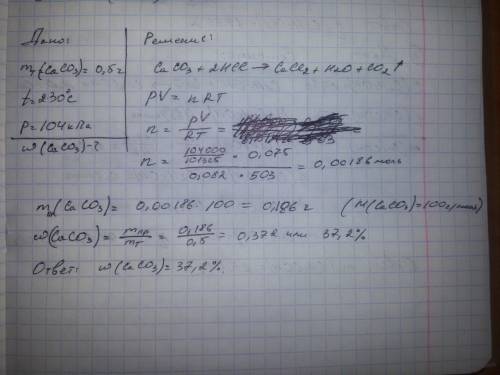 Дано:
m₁(CaCO3) = 0,5 г
t = 230°C
P = 104 кПа
ω(CaCO3) - ?
Решение:
CaCO3 + 2HCl → CaCl2 + H2O + CO2↑
PV = nRT
n = PV / RT =
n = (104000 / 101325 · 0,075) / (0,082 · 503) = 0,00186 моль
(CaCO3) = 0,00186 · 100 = 0,186 г (M(CaCO3) = 100 г/моль)
ω(CaCO3) = mпр / mт = 0,186 / 0,5 = 0,372 или 37,2%
Ответ: ω(CaCO3) = 37,2%.